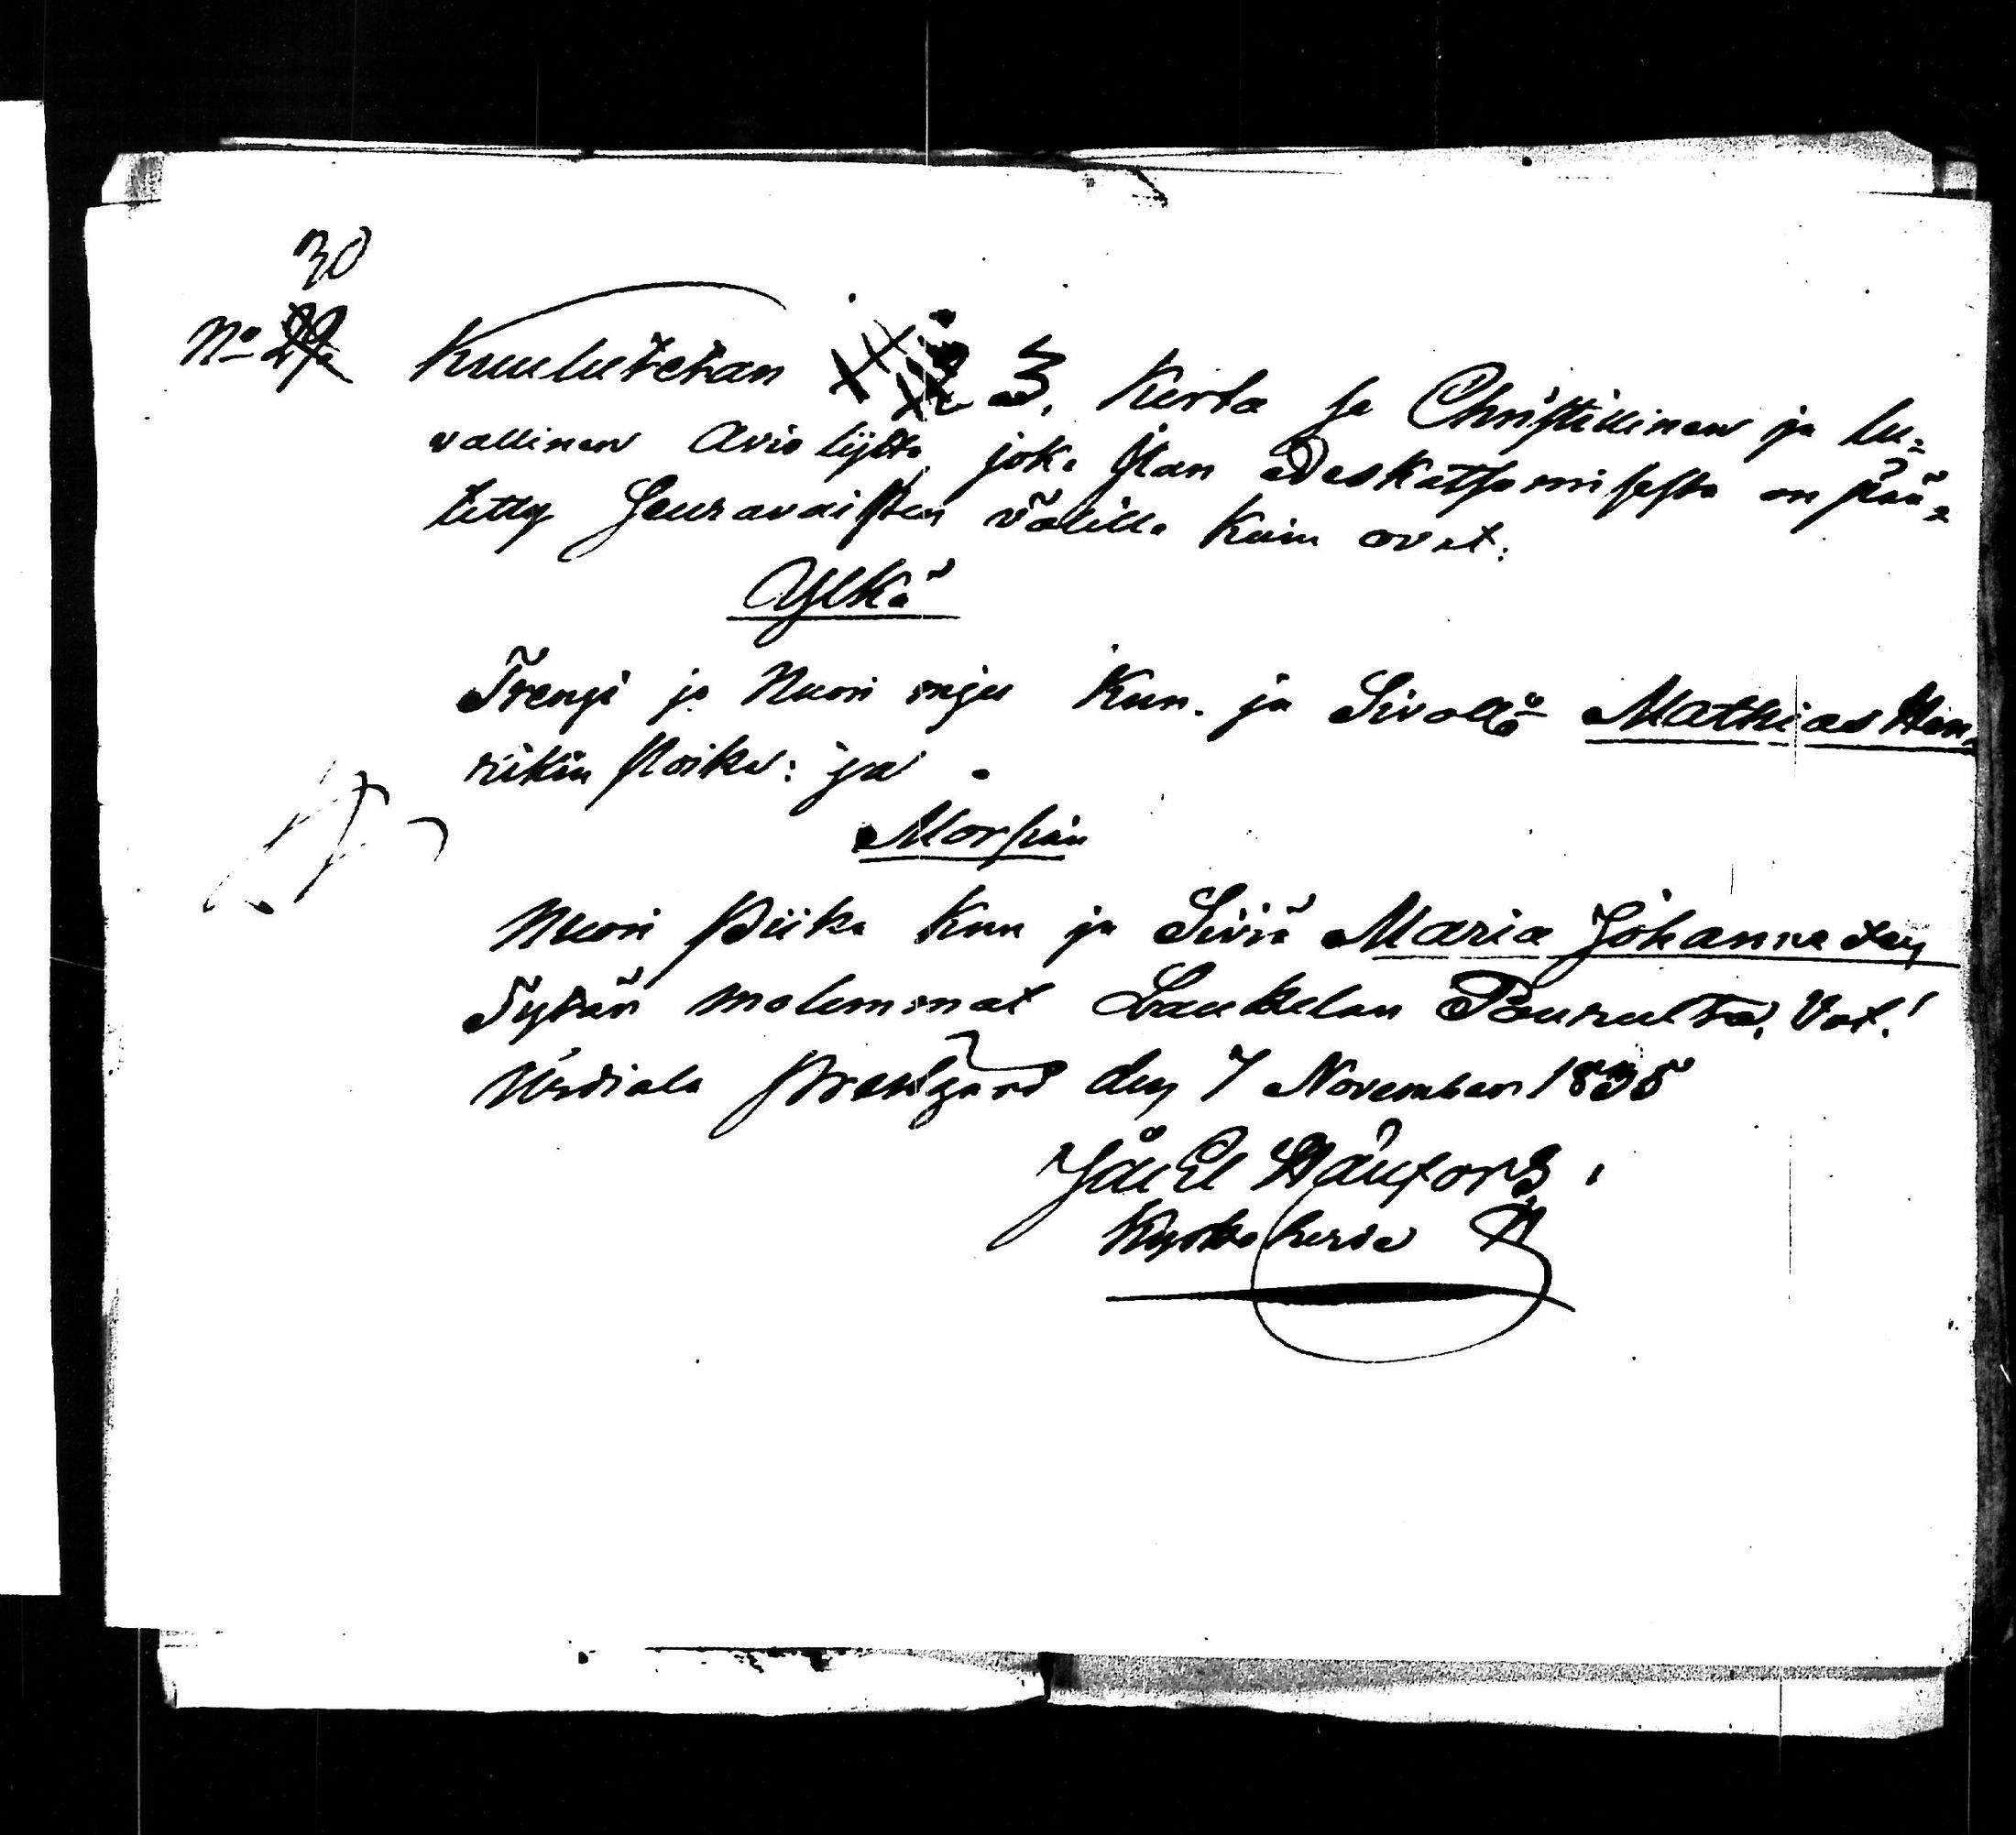 30
No
Kuulutetan 3. Kerta se Christillinen ja lu-
vallinen Avio liitto, joka ilan Edeskatsomisesta on pää-
tetty Seuravaisten välillä Kuin ovat:
Ylkä
Trengi ja Nuori mjes Kun. ja Sivollö Mathias Hen-
rikin Poika: ja
Morsian
Nuori Piika Kun ja Siviä Maria Johannexen
Tytär molemmat Laukelan Bourulta.
Urdiala Prestgård den 7 November 1838
Kyrko herde